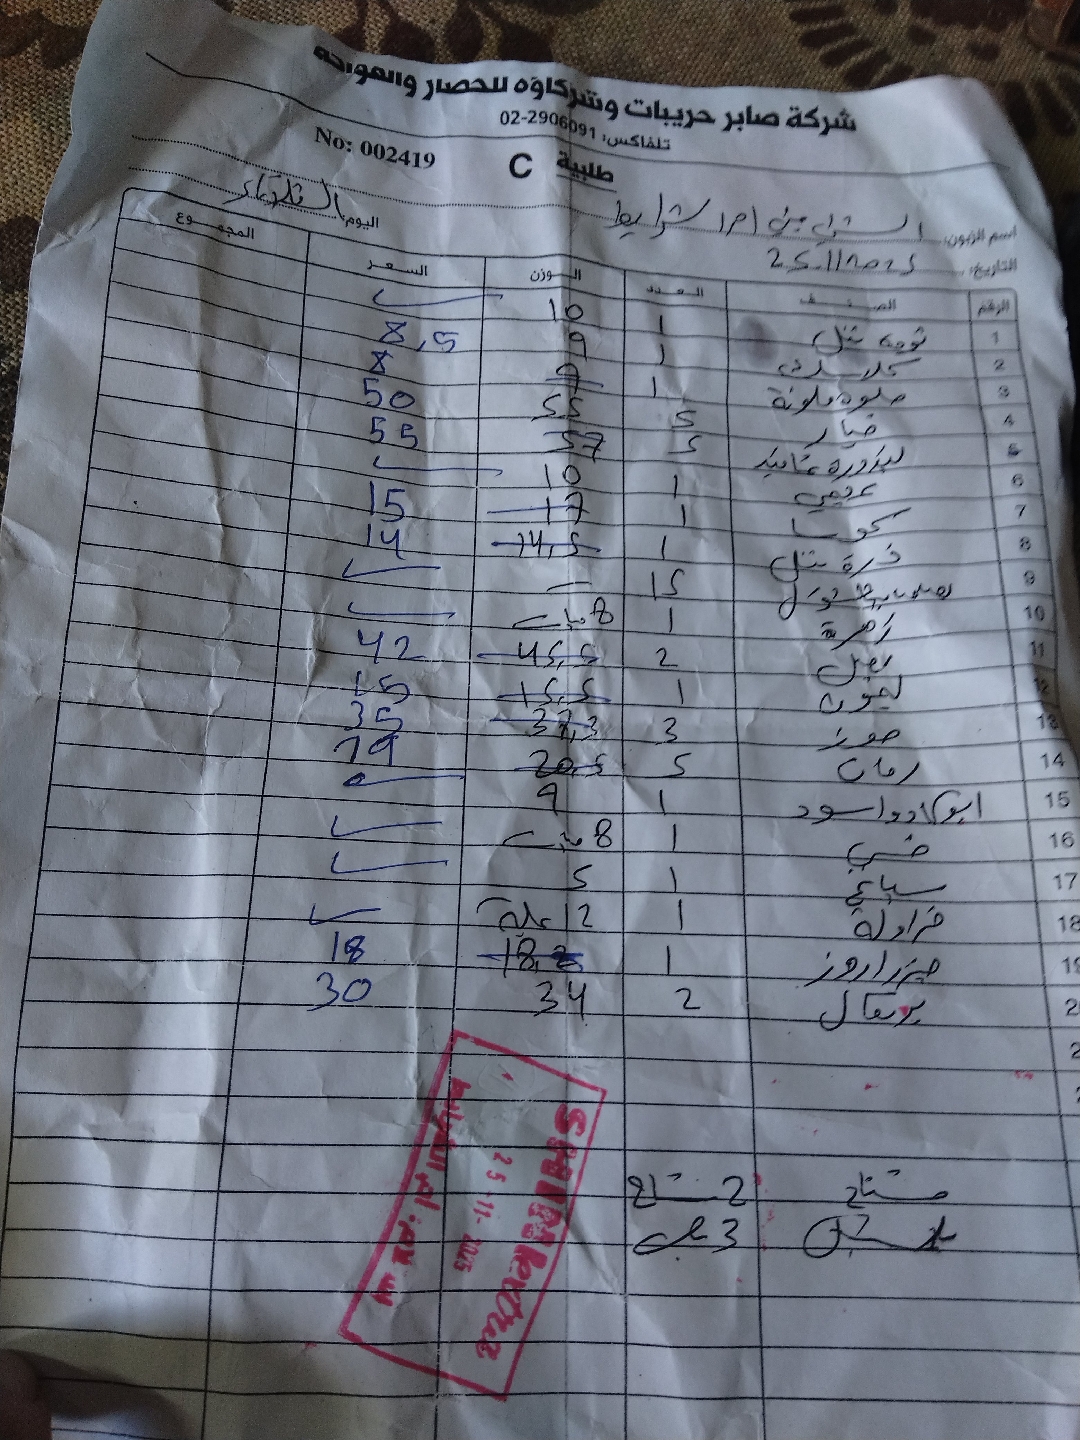 شركة صابر حريبات وشركاؤه للخضار والفواكه
تلفاكس: 02-2906091
No: 002419
طلبية C
اسم الزبون: ام الشرايط
اليوم: الثلاثاء
التاريخ: 25.11.2025
الرقم الصنف العدد الوزن السعر المجموع
1 تومه تتل 1 10 ✓
2 1 9 8,5
3 حلوه ملونة 1 9 8
4 خيار 5 55 50
5 بندورة 5 57 55
6 1 10 ✓
7 كوسا 1 17 15
8 ذرة تتل 1 14,5 14
9 15 – ✓
10 زهرة 1 8 حبات ✓
11 بصل 2 45,5 42
12 ليمون 1 15,5 15
13 موز 3 37,3 35
14 رمان 5 20,5 19
15 افوكادو اسود 1 9 ✓
16 خس 1 8 حبات ✓
17 1 5 ✓
18 فراولة 1 12 علبة ✓
19 جزر اروز 1 18,8 18
20 برتقال 2 34 30
2
مشتاح 2 مشتاح
3
25-11-2025